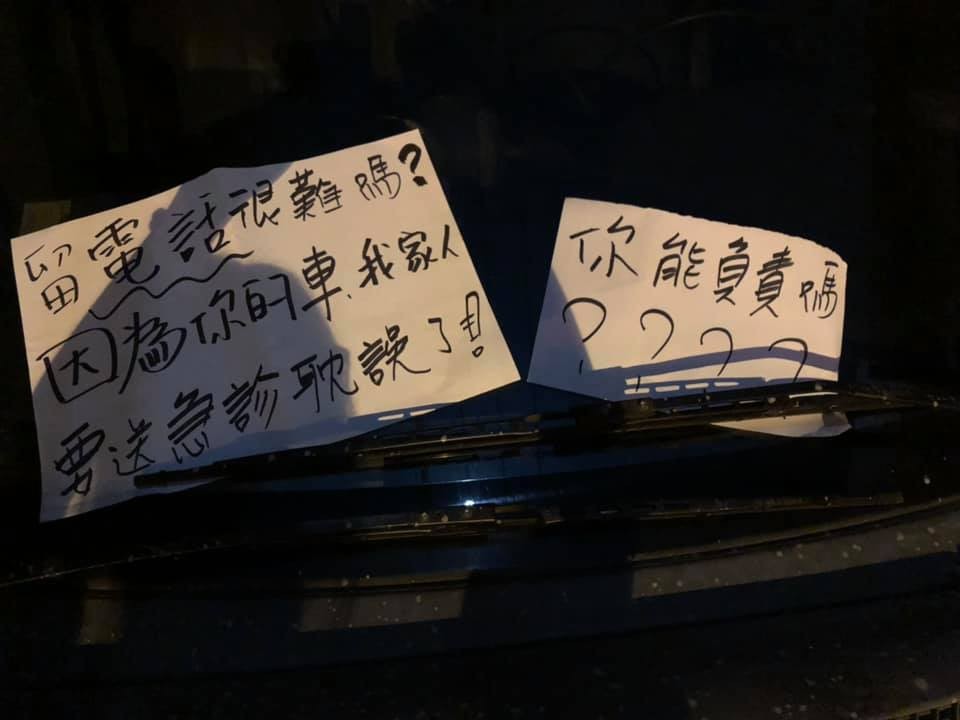 留電話很難嗎?
因為你的車、我家人
要送急診耽誤了!!
你能負責嗎
????